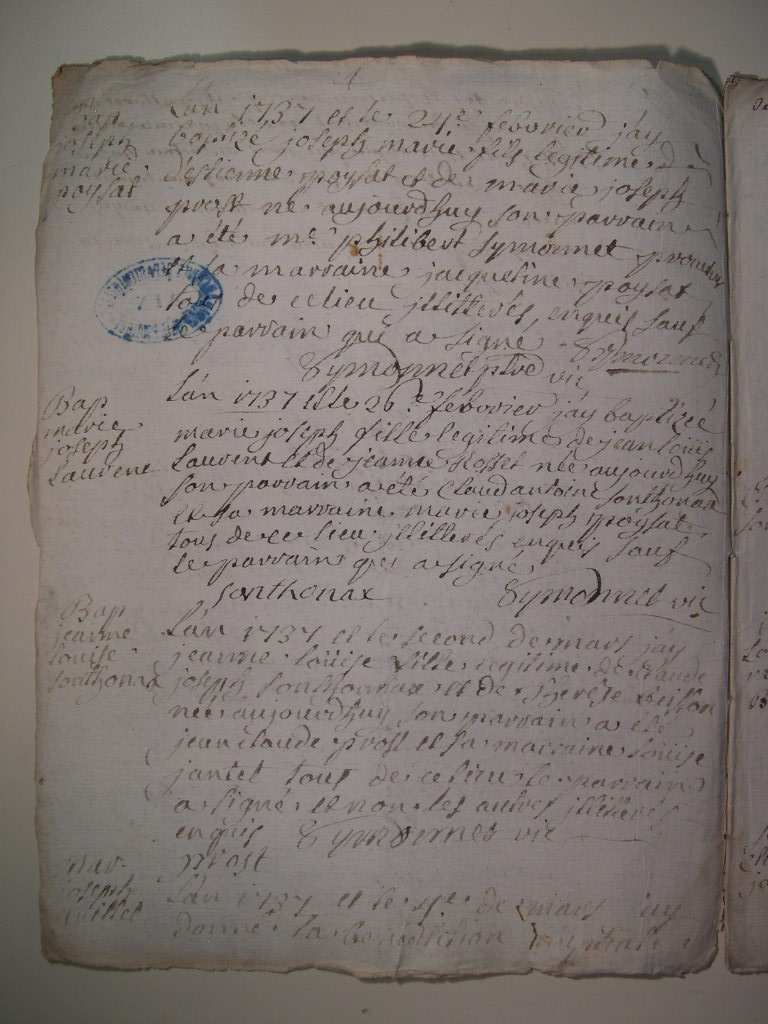 Bap
joseph
marie
poysat
L'an 1737 et le 24e febvrier j'ay
baptizé joseph marie fils legitime
d'estienne poysat et de marie joseph
prost né aujourdhuy son parrain
a été me philibert Symonnet
et la marraine jacqueline poysat
tous de ce lieu jllitterés, enquis sauf
le parrain qui a signé
Symonnet ptre vic
Bap
marie
joseph
Laurent
L'an 1737 et le 26e febvrier j'ay baptizée
marie joseph fille legitime de jean loüis
Laurent et de jeanne née aujourdhuy
son parrain a été Claud antoine Sonthonax
et sa marraine marie joseph poysat
tous de ce lieu jllitterés enquis sauf
le parrain qui a signé
Sonthonax Symonnet vic
Bap
jeanne
louise
Sonthonax
L'an 1737 et le second de mars j'ay
jeanne loüise fille legitime de Claude
joseph Sonthonnax et de Therese
née aujourdhuy son parrain a été
jean Claude prost et sa marraine loüise
jantet tous de ce lieu le parrain
a signé et non les autres jllitterés
enquis Symonnet vic
prost
Mar
joseph
L'an 1737 et le 4e de mars j'ay
donné la benediction nuptiale